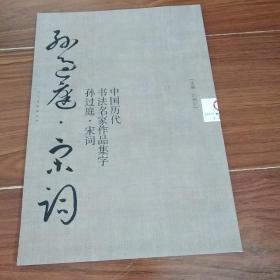 孙过庭·宋词
中国历代
书法名家作品集字
孙过庭·宋词